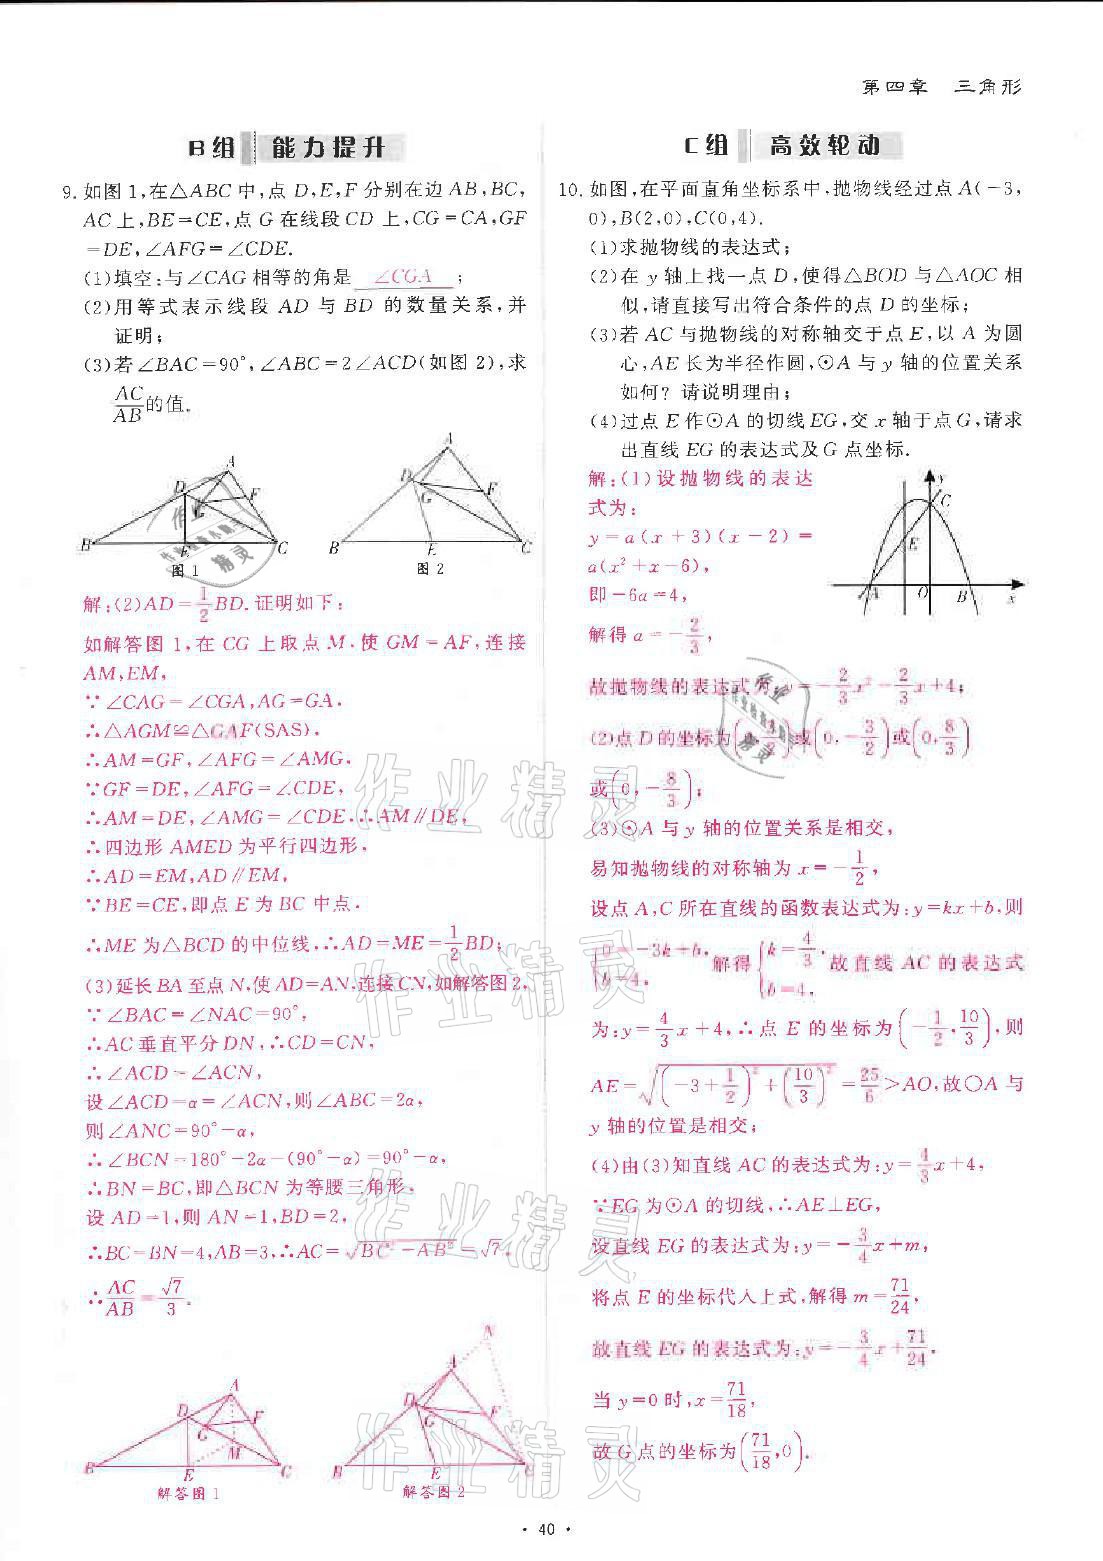 第四章 三角形
B组 能力提升
9. 如图1,在△ABC中,点D,E,F分别在边AB,BC,
AC上,BE=CE,点G在线段CD上,CG=CA,GF
=DE,∠AFG=∠CDE.
(1)填空:与∠CAG相等的角是 ∠CGA ;
(2)用等式表示线段AD与BD的数量关系,并
证明;
(3)若∠BAC=90°,∠ABC=2∠ACD(如图2),求
AC/AB的值.
A
D
F
G
B
E
C
图1
A
D
G
F
B
E
C
图2
解:(2)AD=1/2BD.证明如下:
如解答图1,在CG上取点M.使GM=AF,连接
AM,EM,
∵∠CAG=∠CGA,AG=GA.
∴△AGM≌△GAF(SAS).
∴AM=GF,∠AFG=∠AMG.
∵GF=DE,∠AFG=∠CDE,
∴AM=DE,∠AMG=∠CDE.∴AM∥DE,
∴四边形AMED为平行四边形.
∴AD=EM,AD∥EM,
∵BE=CE,即点E为BC中点.
∴ME为△BCD的中位线.∴AD=ME=1/2BD;
(3)延长BA至点N,使AD=AN,连接CN,如解答图2,
∵∠BAC=∠NAC=90°,
∴AC垂直平分DN,∴CD=CN,
∴∠ACD=∠ACN,
设∠ACD=α=∠ACN,则∠ABC=2α,
则∠ANC=90°-α,
∴∠BCN=180°-2α-(90°-α)=90°-α,
∴BN=BC,即△BCN为等腰三角形,
设AD=1,则AN=1,BD=2,
∴BC=BN=4,AB=3,∴AC=√(BC²-AB²)=√7,
∴AC/AB=√7/3.
A
D
F
G
M
B
E
C
解答图1
N
A
D
G
F
B
E
C
解答图2
C组 高效轮动
10. 如图,在平面直角坐标系中,抛物线经过点A(-3,
0),B(2,0),C(0,4).
(1)求抛物线的表达式;
(2)在y轴上找一点D,使得△BOD与△AOC相
似,请直接写出符合条件的点D的坐标;
(3)若AC与抛物线的对称轴交于点E,以A为圆
心,AE长为半径作圆,⊙A与y轴的位置关系
如何?请说明理由;
(4)过点E作⊙A的切线EG,交x轴于点G,请求
出直线EG的表达式及G点坐标.
解:(1)设抛物线的表达
式为:
y=a(x+3)(x-2)=
a(x²+x-6),
即-6a=4,
解得a=-2/3,
y
C
E
A
O
B
x
故抛物线的表达式为y=-2/3x²-2/3x+4;
(2)点D的坐标为(0,3/2)或(0,-3/2)或(0,8/3)
或(0,-8/3);
(3)⊙A与y轴的位置关系是相交,
易知抛物线的对称轴为x=-1/2,
设点A,C所在直线的函数表达式为:y=kx+b,则
{0=-3k+b, b=4. 解得{k=4/3, b=4. 故直线AC的表达式
为:y=4/3x+4,∴点E的坐标为(-1/2,10/3),则
AE=√((-3+1/2)²+(10/3)²)=25/6>AO,故○A与
y轴的位置是相交;
(4)由(3)知直线AC的表达式为:y=4/3x+4,
∵EG为⊙A的切线,∴AE⊥EG,
设直线EG的表达式为:y=-3/4x+m,
将点E的坐标代入上式,解得m=71/24,
故直线EG的表达式为:y=-3/4x+71/24.
当y=0时,x=71/18,
故G点的坐标为(71/18,0).
· 40 ·
作业精灵
作业精灵
作业精灵
作业精灵